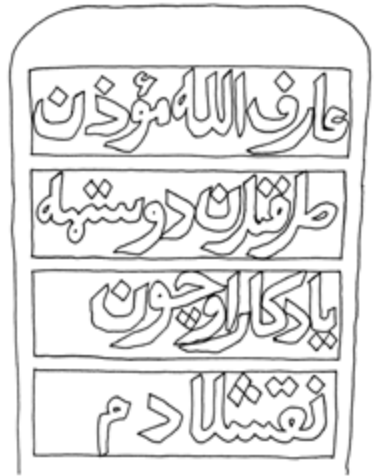 عارف الله مؤذن
طرفندن دوستمه
یادکار اوچون
نقشلادم